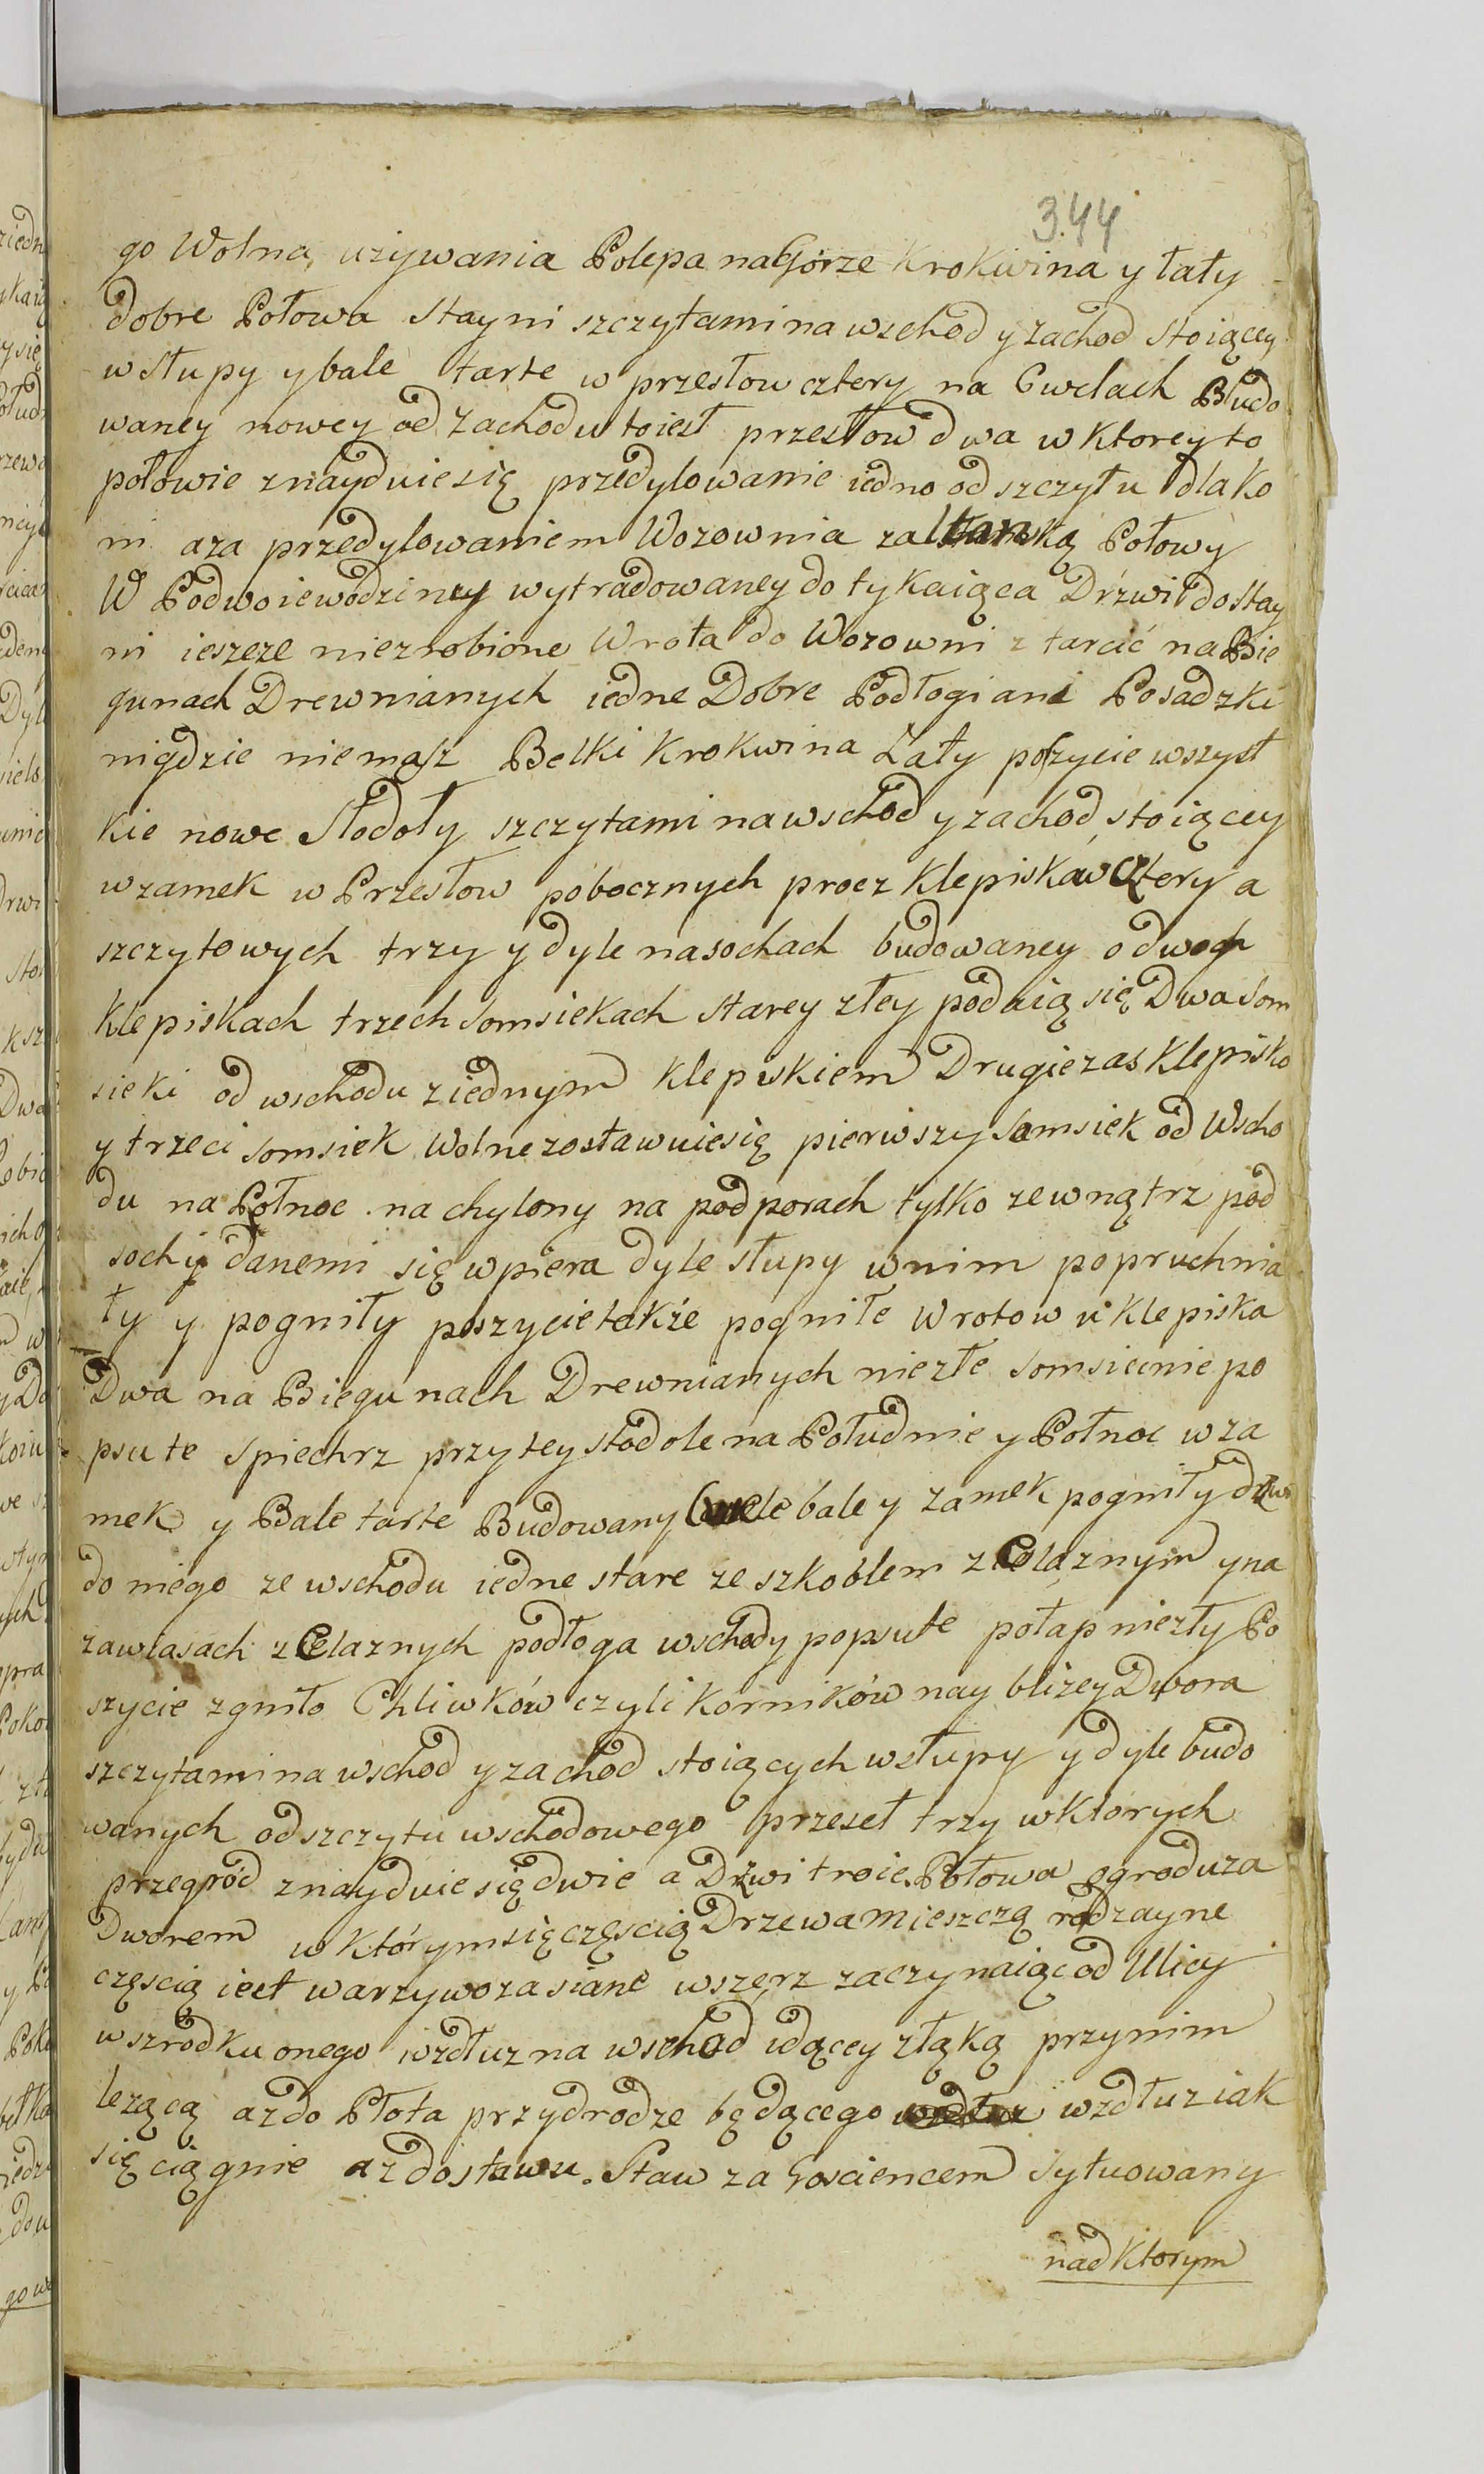 344
go Wolna, uzywania Polepa na Gorze Krokwina y łaty
dobre Połowa Stayni szczytami na wschod y zachod stoiącey
w słupy y bale tarte w przesłow cztery na Cwelach Budo
waney nowey od zachodu toiest przesłow dwa w ktorey to
połowie znayduie się przedylowanie iedno od szczytu dla ko
ni a za przedylowaniem Wozownia za Połowy
W Podwoiewodziney wytradowaney dotykaiąca Drzwi do stay
ni ieszcze niezrobione Wrota do Wozowni z tarcić na Bie
gunach Drewnianych iedne Dobre Podłogi ani Posadzki
nigdzie niemasz Belki Krokwina Łaty poszycie wszyst
kie nowe Stodoły szczytami na wschod y zachod stoiącey
w zamek w Przesłow pobocznych procz klepisków cztery a
szczytowych trzy y dyle na sochach budowaney o dwoch
klepiskach trzech somsiekach starey złey podaią się Dwa som
sieki od wschodu z iednym klepiskiem Drugie zas klepisko
y trzeci somsiek Wolne zostawuie się pierwszy Somsiek od Wscho
du na Połnoc nachylony na podporach tylko zewnątrz pod
sochy danemi się wpiera dyle słupy w nim popruchnia
ły y pogniły poszycie także pogniłe Wrotow u klepiska
Dwa na Biegunach Drewnianych niezłe Somsiecnie po
psute Spiechrz przy tey stodole na Południe y Połnoc w za
mek y Bale tarte Budowany Cwele bale y zamek pogniły drzwi
do niego ze wschodu iedne stare ze szkoblem zelaznym y na
zawiasach zelaznych podłoga wschody popsute połap niezły Po
szycie zgniło Chliwków czyli kórników nay bliżey Dwora
szczytami na wschod y zachod stoiących w słupy y dyle budo
wanych od szczytu wschodowego przeseł trzy w ktorych
przegród znayduie się dwie a Drzwi troie. Połowa ogrodu za
Dworem w którym się częścią Drzewa mieszczą rodzayne
częscią iest warzywo zasiane wszerz zaczynaiąc od Ulicy
w szrodku onego wzdłuz na wschod idącey z łąką przy nim
lezącą az do Płota przy drodze będącego wzdłuz iak
się ciągnie az do stawu. Staw za Gosciencem Sytuowany
nad ktorym